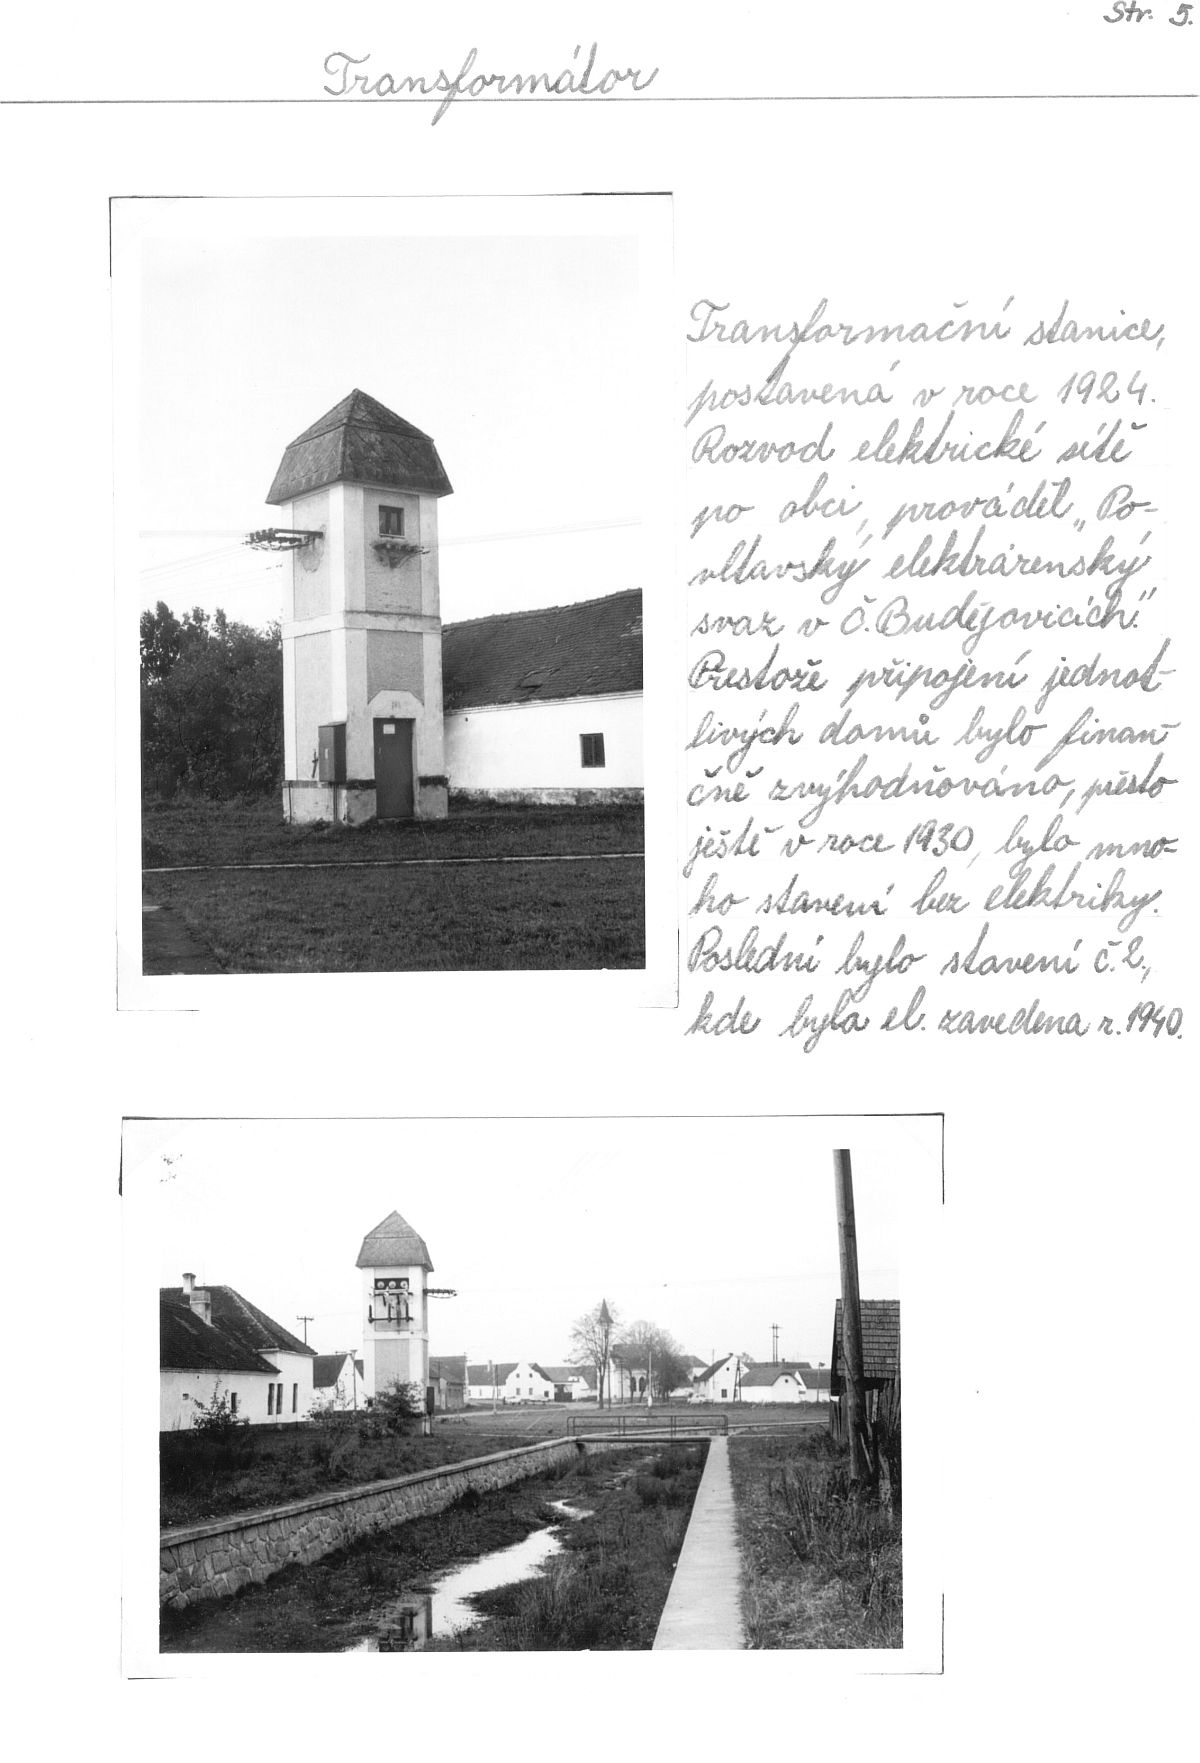 Str. 5.
Transformátor
Transformační stanice,
postavená v roce 1924.
Rozvod elektrické sítě
po obci, prováděl „Po-
vltavský elektrárenský
svaz v Č. Budějovicích".
Přestože připojení jednot-
livých domů bylo finan-
čně zvýhodňováno, přesto
ještě v roce 1930, bylo mno-
ho stavení bez elektriky.
Poslední bylo stavení č. 2.,
kde byla el. zavedena r. 1940.